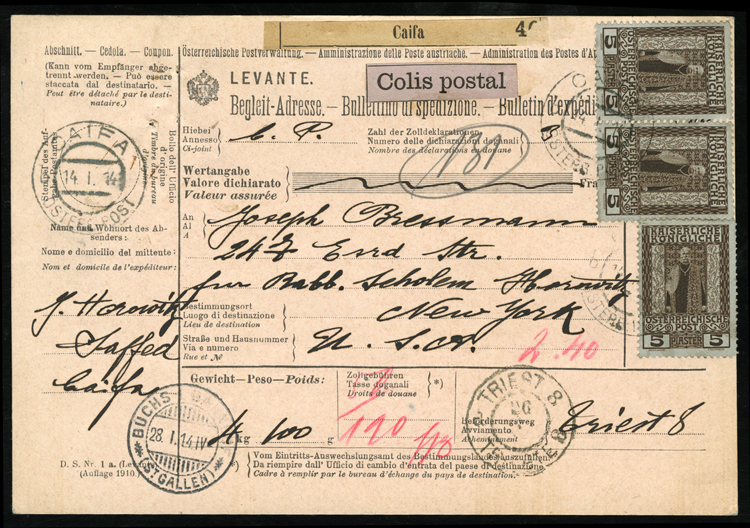 Caifa
Abschnitt. — Cedola. — Coupon.
(Kann vom Empfänger abge-
trennt werden. — Può essere
staccata dal destinatario. —
Peut être détaché par le desti-
nataire.)
Österreichische Postverwaltung. — Amministrazione delle Poste austriache. — Administration des Postes d'A
LEVANTE.
Colis postal
Begleit-Adresse. — Bullettino di spedizione. — Bulletin d'expédi
Hiebei
Annesso
Ci-joint
C. P.
Zahl der Zolldeklarationen
Numero delle dichiarazioni doganali
Nombre des déclarations en douane
Bollo dell' Ufficio
d'origine
Timbre du bureau
CAIFA
14. I. 14
ÖSTERR. POST
Wertangabe
Valore dichiarato
Valeur assurée
Fra
Name und Wohnort des Ab-
senders:
Nome e domicilio del mittente:
Nom et domicile de l'expéditeur:
J. Horowitz
Saffed
Caifa
An
Al
A
Joseph Bressmann
242 Erd Str.
fur Rabb. Scholem Horowitz
Bestimmungsort
Luogo di destinazione
Lieu de destination
New York
Straße und Hausnummer
Via e numero
Rue et №
U. S. A.
2.40
Gewicht—Peso—Poids:
4 kg 100 g
Zollgebühren
Tasse doganali
Droits de douane
*)
190
Beförderungsweg
Avviamento
Acheminement
Triest 8
TRIEST 8
TRIESTE 8
BUCHS
28. I. 14 IV
(ST. GALLEN)
D. S. Nr. 1 a.
(Auflage 1910.)
*) Vom Eintritts-Auswechslungsamt des Bestimmungslandes auszufüllen.
Da riempire dall' Ufficio di cambio d'entrata del paese di destinazione.
Cadre à remplir par le bureau d'échange du pays de destination.
KAISERLICHE
KÖNIGLICHE
5
KAISERLICHE
KÖNIGLICHE
5
KAISERLICHE
KÖNIGLICHE
ÖSTERREICHISCHE
POST
5 PIASTER 5